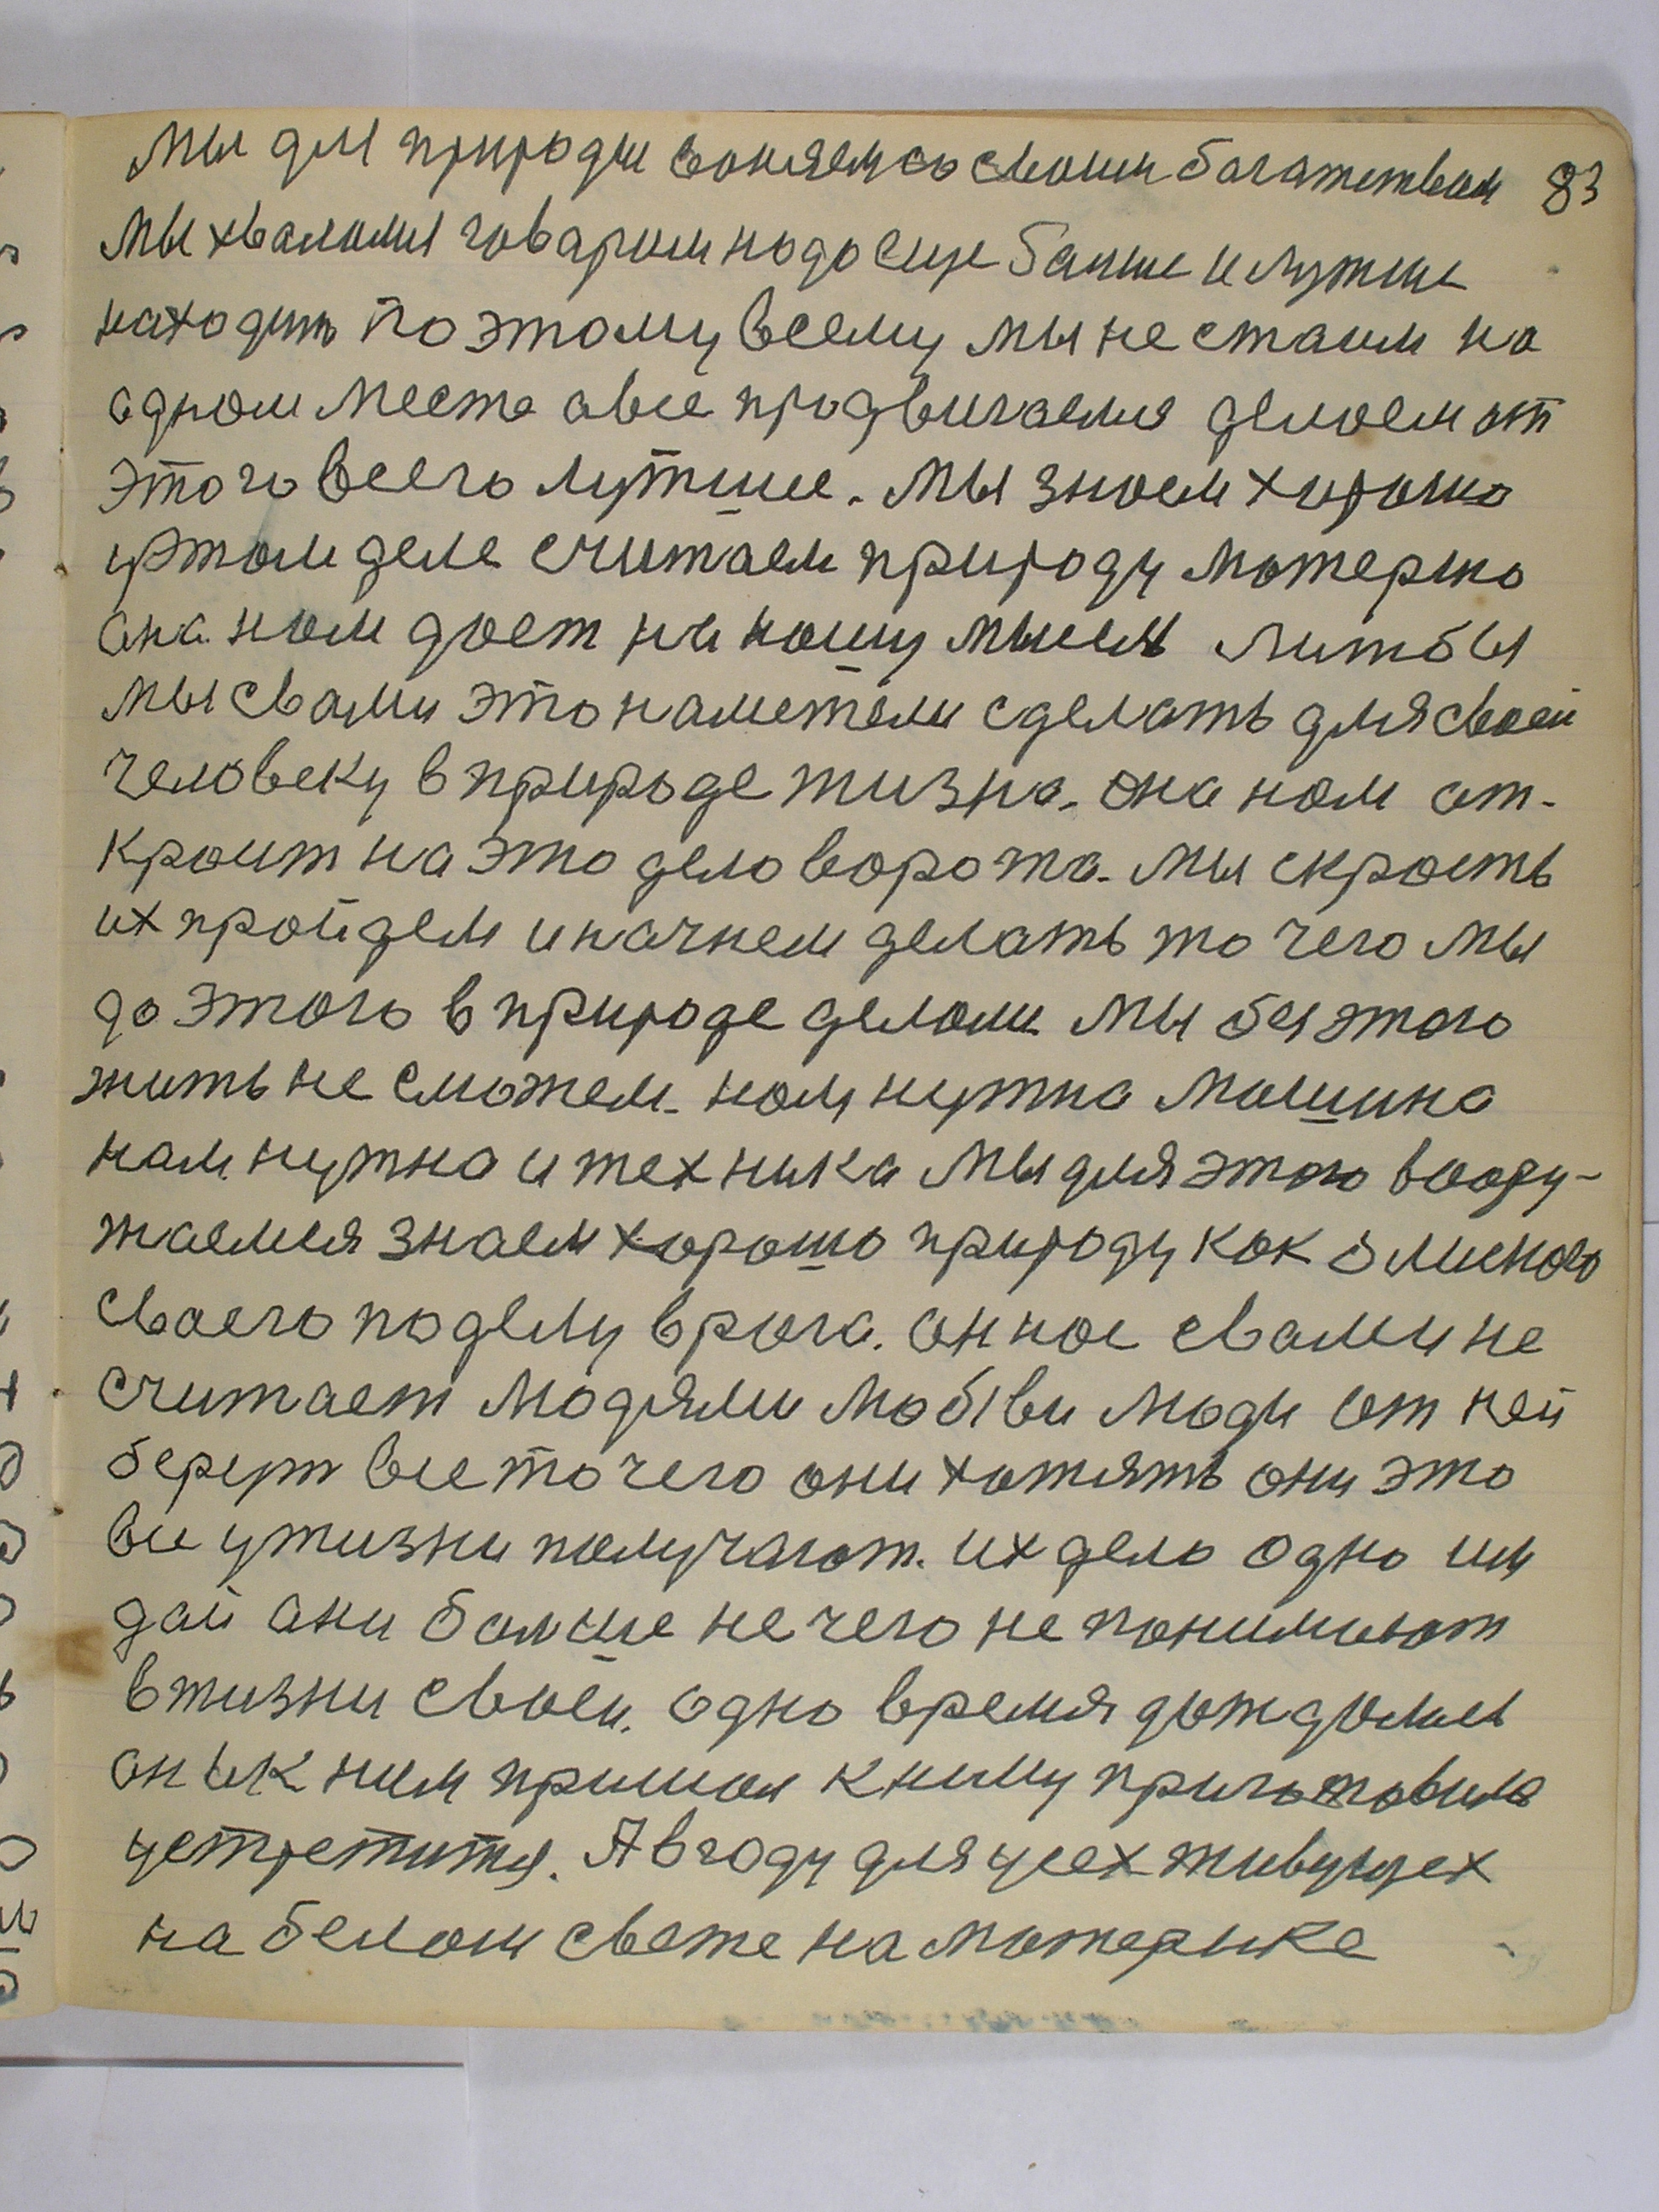 Мы для природы воняемсо своим богатством 83
Мы хвалимся говорим надо еще больше и лутше
находить поэтому всему мы не стаим на
адном месте а все продвигаемся делоем от
этого всего лутшее. Мы знаем хорошо
у этом деле считаем природу матерью
она нам дает на нашу мысль лишбы
мы свами это наметели сделать для своей
человеку в природе жизна. она нам от-
кроит на это дело ворота. Мы скрость
их пройдем и начнем делать то чего мы
до этого в природе делали Мы без этого
жить не сможем. нам нужна машина
нам нужна и техника Мы для этого вооду-
жаемся знаем хорошо природу как
своего по делу врага. он нас свами не
считает людями любви люди от ней
берут все то чего они хотять они это
все у жизни получают. их дело одно им
дай они больше не чего не понимают
в жизни своей. одно время дождались
он ик ним пришол к ниму приготовила
устретится. Я в году для усех живущех
на белом свете на матерыке